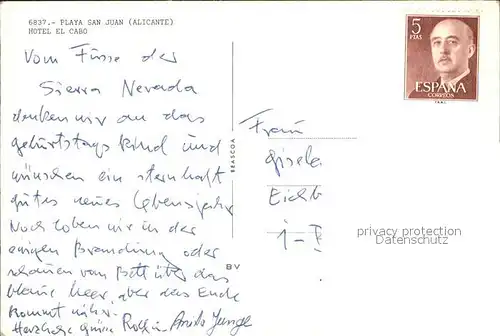 6837.- PLAYA SAN JUAN (ALICANTE)
HOTEL EL CABO
Vom Fusse der
Sierra Nevada
denken wir an das
geburtstagskind und
wünschen ein sternhaft
gutes neues Lebensjahr
Noch toben wir in der
ewigen Brandung oder
schauen vom Bett über das
blaue Meer, aber das Ende
kommt näher.
Herzliche Grüsse
BEASCOA
BV
5
PTAS
ESPAÑA
CORREOS
Frau
Gisela
Eich
privacy protection
Datenschutz